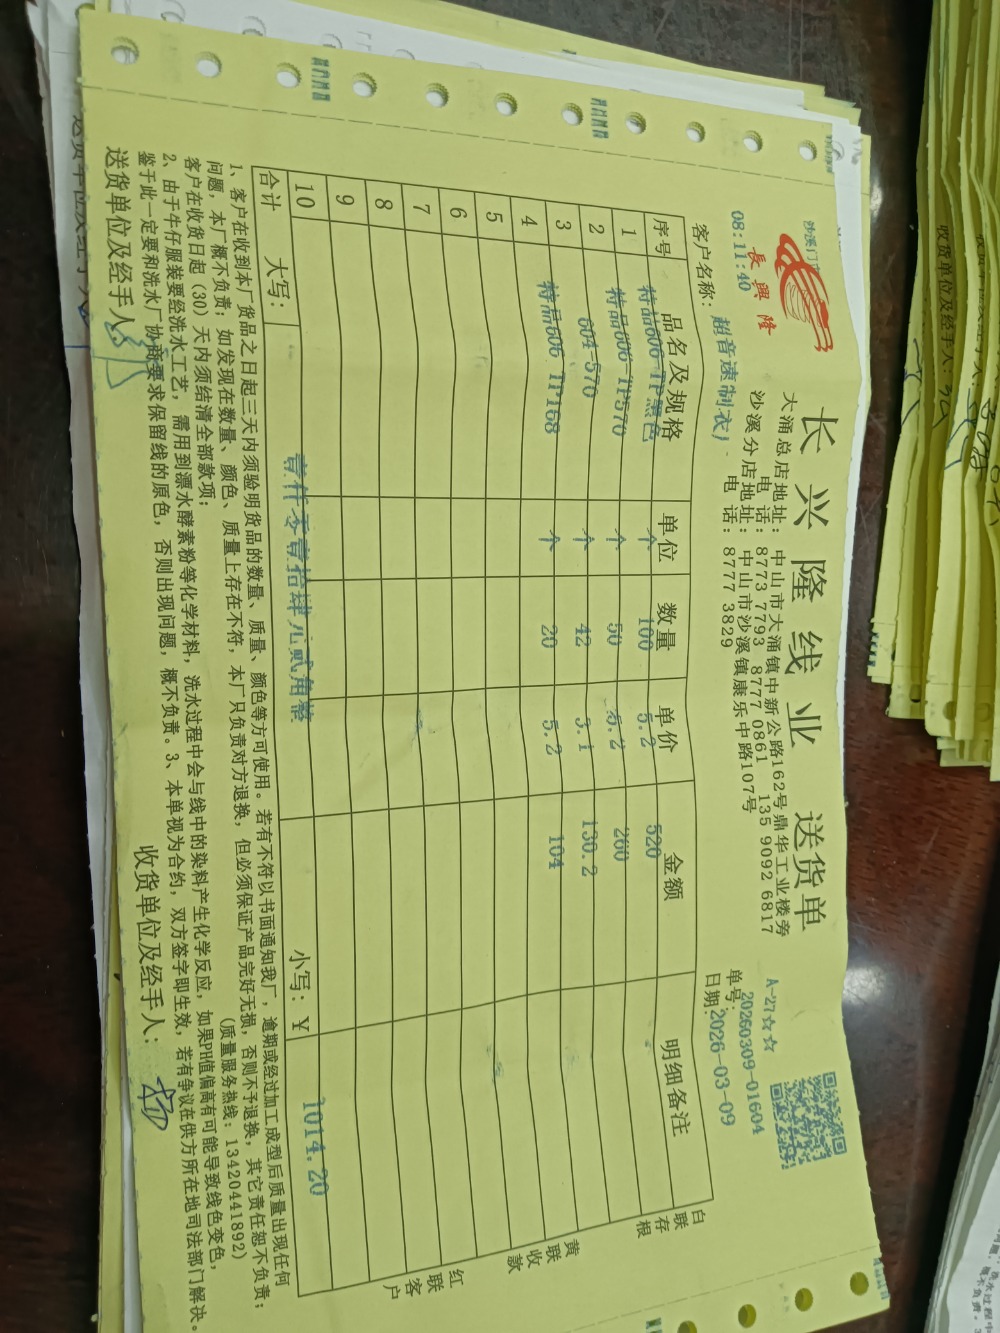 长兴隆线业 送货单
長興隆
沙溪门
大涌总店地址：中山市大涌镇中新公路162号鼎华工业楼旁
电话：8773 7793 8777 0861 135 9092 6817
沙溪分店地址：中山市沙溪镇康乐中路107号
电话：8777 3829
A-27☆☆
08:11:40
单号：20260309-01604
客户名称：超音速制衣厂
日期：2026-03-09
序号 品名及规格 单位 数量 单价 金额 明细备注
1 特品606-TP黑色 个 100 5.2 520
2 特品606-TP570 个 50 5.2 260
3 604-570 个 42 3.1 130.2
4 特品606 TP168 个 20 5.2 104
5
6
7
8
9
10
合计 大写：壹仟零壹拾肆元贰角整 小写：￥ 1014.20
白联存根
黄联收款
红联客户
1、客户在收到本厂货品之日起三天内须验明货品的数量、质量、颜色等方可使用。若有不符以书面通知我厂，逾期或经过加工成型后质量出现任何
问题，本厂概不负责；如发现在数量、颜色、质量上存在不符，本厂只负责对方退换，但必须保证产品完好无损，否则不予退换，其它责任恕不负责；
客户在收货日起（30）天内须结清全部款项； （质量服务热线：13420441892）
2、由于牛仔服装要经洗水工艺，需用到漂水酵素粉等化学材料，洗水过程中会与线中的染料产生化学反应，如果PH值偏高有可能导致线色变色，
鉴于此一定要和洗水厂协商要求保留线的原色，否则出现问题，概不负责。3、本单视为合约，双方签字即生效，若有争议在供方所在地司法部门解决。
送货单位及经手人： 收货单位及经手人：
收货单位及经手人：